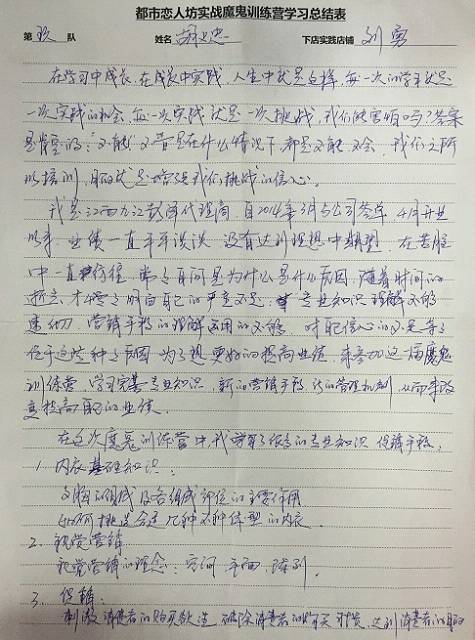 都市恋人坊实战魔鬼训练营学习总结表
第 玖 队 姓名 下店实践店铺 刘勇
在学习中成长，在成长中实践，人生中就是这样，每一次的学习就是
一次实践的机会，每一次实践就是一次挑战，我们能害怕吗？答案
是肯定的：不能，不管是在什么情况下都是不能不会，我们之所
以培训，目的就是增强我们挑战的信心。
我是江西九江彭泽代理商，自2014年3月与公司签单，4月开业
以来，业绩一直平平淡淡，没有达到理想中期望，在苦脑
中一直，常常自问是为什么是什么原因，随着时间的
逝去，才慢慢明白自己的严重不足，专业知识理解不够
透彻，营销手段的理解运用的不够，对自己信心的不足等等
位于这些种种原因，为了想更好的提高业绩，来参加这届魔鬼
训练营，学习完善专业知识，新的营销手段，新的管理机制，从而来改
变提高自己的业绩。
在这次魔鬼训练营中我学习了很多的专业知识，促销手段。
1. 内衣基础知识：
文胸的组成及各组成部位的主要作用
如何挑选合适几种不种体型的内衣.
2. 视觉营销
视觉营销的理念：空间，平面，陈列.
3. 促销：
刺激消费者的购买欲望，破除消费者的，达到消费者的目的